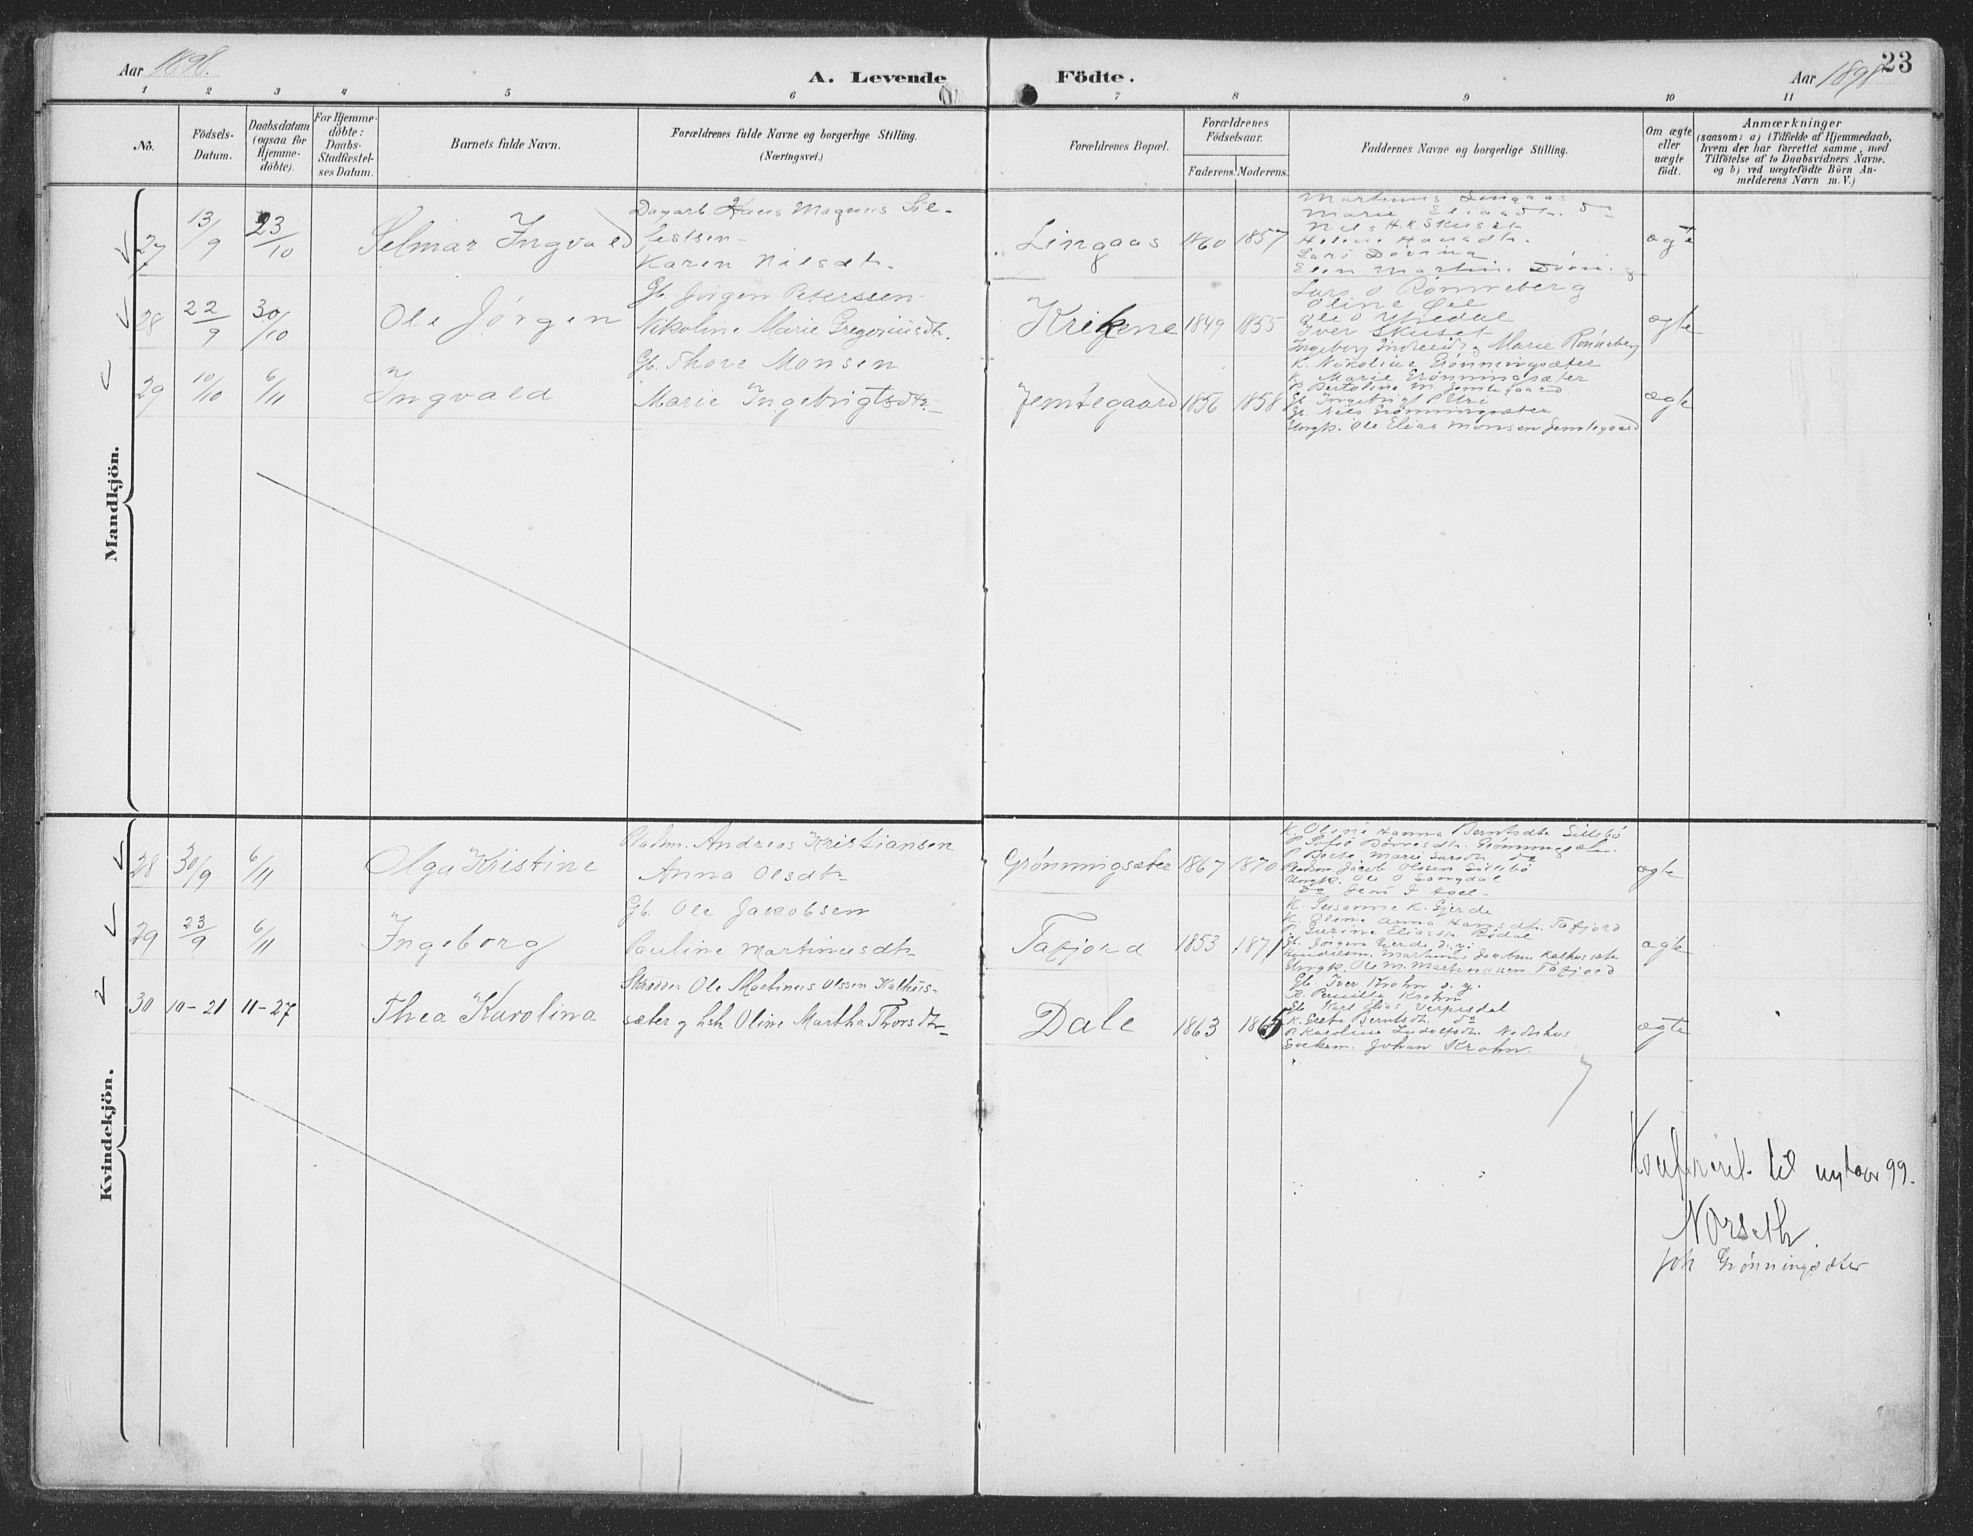 Aar 1898.
A. Levende Födte.
Aar 1898
23
1 2 3 4 5 6 7 8 9 10 11
No.
Födsels-Datum.
Daabsdatum (ogsaa for Hjemme-döbte).
For Hjemme-döbte: Daabs-Stadfæstel-ses Datum.
Barnets fulde Navn.
Forældrenes fulde Navne og borgerlige Stilling.
(Næringsvei.)
Forældrenes Bopæl.
Forældrenes Födselsaar.
Faderens. Moderens.
Faddernes Navne og borgerlige Stilling.
Om ægte eller uægte födt.
Anmærkninger
(saasom: a) i Tilfælde af Hjemmedaab,
hvem der har forrettet samme, med
Tilföielse af to Daabsvidners Navne.
og b) ved uægtefödte Börn An-
melderens Navn m. V.)
Mandkjön.
27 13/9 23/10 Selmar Ingvald
Dagarb. Hans Magnus
Karen Nilsdt.
Lingaas 1860 1857
Martinus Lingaas
Marie do
Nils H. K. Skuset
Hansdt.
Lars Døving
ægte
28 22/9 30/10 Ole Jörgen
Gb. Jörgen Peterssen
Nikoline Marie Gregoriusdt.
Krikene 1849 1855
Lars O Rønneberg
Oline Øie
Ole O Uredal
Iver Skuset
Ingeborg Marie Rønneberg
ægte
29 10/10 6/11 Ingvald
Gb. Thore Monsen
Marie Ingebrigtsdt.
Jemtegaard 1856 1858
K. Nikoline Grønningsæter
K. Marie Grønningsæter
P. Bertoline M. Jemtegaard
Gb. Ingebrigt P Uri
Gb. Nils Grønningsæter
Ungk. Ole Elias Monsen Jemtegaard
ægte
Kvindekjön.
28 30/9 6/11 Olga Kristine
Andreas Kristiansen
Anna Olsdt.
Grønningsæter 1867 1870
K. Oline Hanna Berntsdt. Sillebö
Marie Larsdt. do
Jacob Olssen Sillebö
Ungk. Ole O
Do Jens J
ægte
29 23/9 6/11 Ingeborg
Gb. Ole Jacobsen
Pauline Martinusdt.
Tafjord 1853 1871
K. Susanne K. Gjerde
K. Oline Anna Hansdt. Tafjord
P. Eliasdt. Bødal
Gb. Jörgen Gjerde d. y.
Martinus
Ungk. Ole M. Martinussen Tafjord
ægte
30 10-21 11-27 Thea Karolina
Skredder Ole Martinus Olssen Kalhus-
sæter og hstr. Oline Martha Thorsdt.
Dale 1863 1865
Gb. Iver Krohn d. y.
K. Pernille Krohn
Gb. Karl Elias Verpesdal
K. Berntsdt. do
P. Karoline Ludolfsdt. Nedrehus
Enkem. Johan Krohn.
ægte
Konfereret til nytaar 99.
Norseth.
Joh Grønningsæter